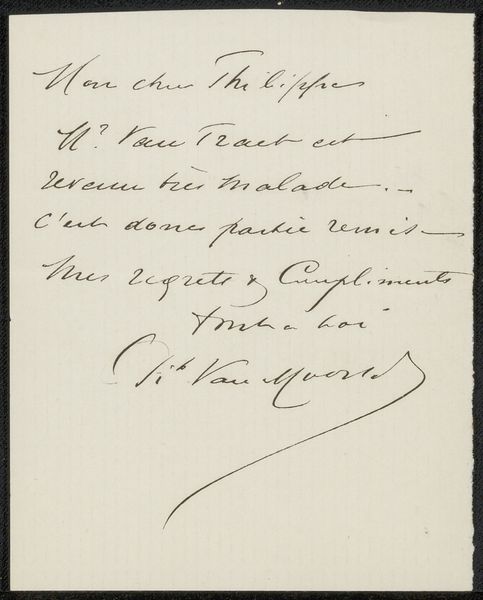 Mon cher Philippe
Mr. Van Praet est
revenu très malade. -
c'est donc partie remise
Mes regrets & Compliments
tout à toi
Van Moorsel